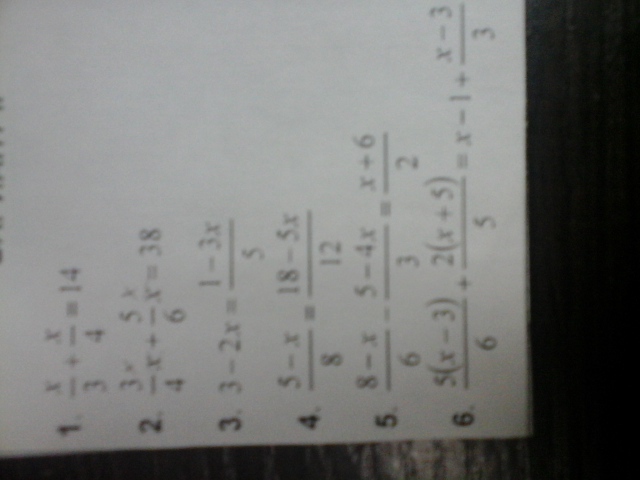 1. x/3 + x/4 = 14
2. 3/4 x + 5/6 x = 38
3. 3 − 2x = (1 − 3x)/5
4. (5 − x)/8 = (18 − 5x)/12
5. (8 − x)/6 − (5 − 4x)/3 = (x + 6)/2
6. 5(x − 3)/6 + 2(x + 5)/5 = x − 1 + (x − 3)/3